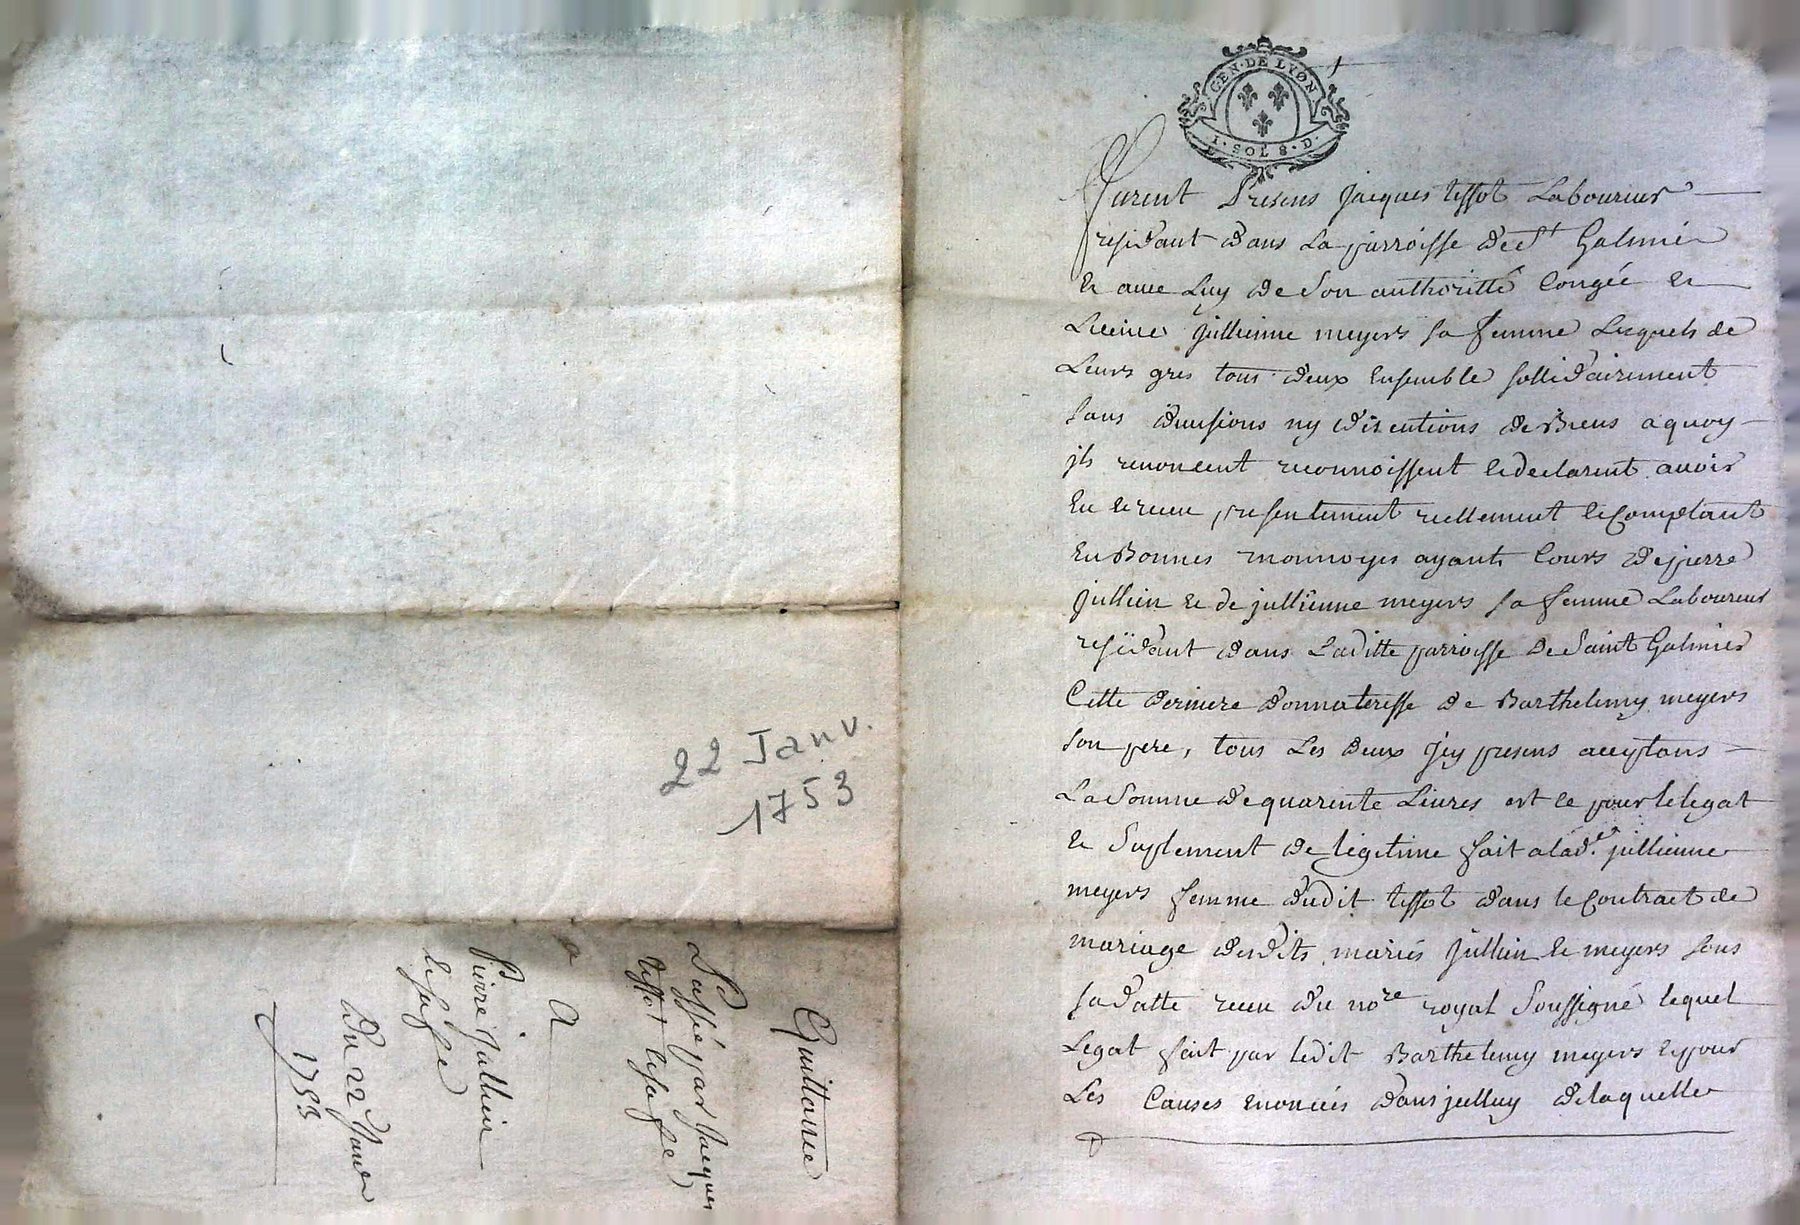 GEN·DE LYON
1·SOL 8·D·
furent Presens Jacques tissot Laboureur
residant dans La parroisse de St Galmier
et avec Luy de Son authoritté Congée et
Licence Jullienne meyers sa femme Lesquels de
Leurs gres tous deux Ensemble sollidairement
sans divisions ny discutions de Biens a quoy
jls renoncent reconnoissent et declarent avoir
Eu et receu presentement reellement et Comptant
En Bonnes monnoyes ayant Cours de pierre
Jullien et de jullienne meyers sa femme Laboureur
residant dans Laditte parroisse De Saint Galmier
Cette derniere donnateresse de Barthelemy meyers
son pere, tous Les deux jcy presens acceptans
La Somme de quarente Livres et ce pour le legat
et Suplement de legitime fait a lade. jullienne
meyers femme dudit tissot dans le Contract de
mariage desdits mariés Jullien et meyers sous
sa datte receu du nore royal Soussigné lequel
Legat fait par ledit Barthelemy meyers et pour
Les Causes enoncées dans jcelluy de laquelle
22 Janv.
1753
Quittance
Passée par Jacques
tissot et sa fe
A
Pierre Jullien
et sa fe
Du 22 Janer
1753